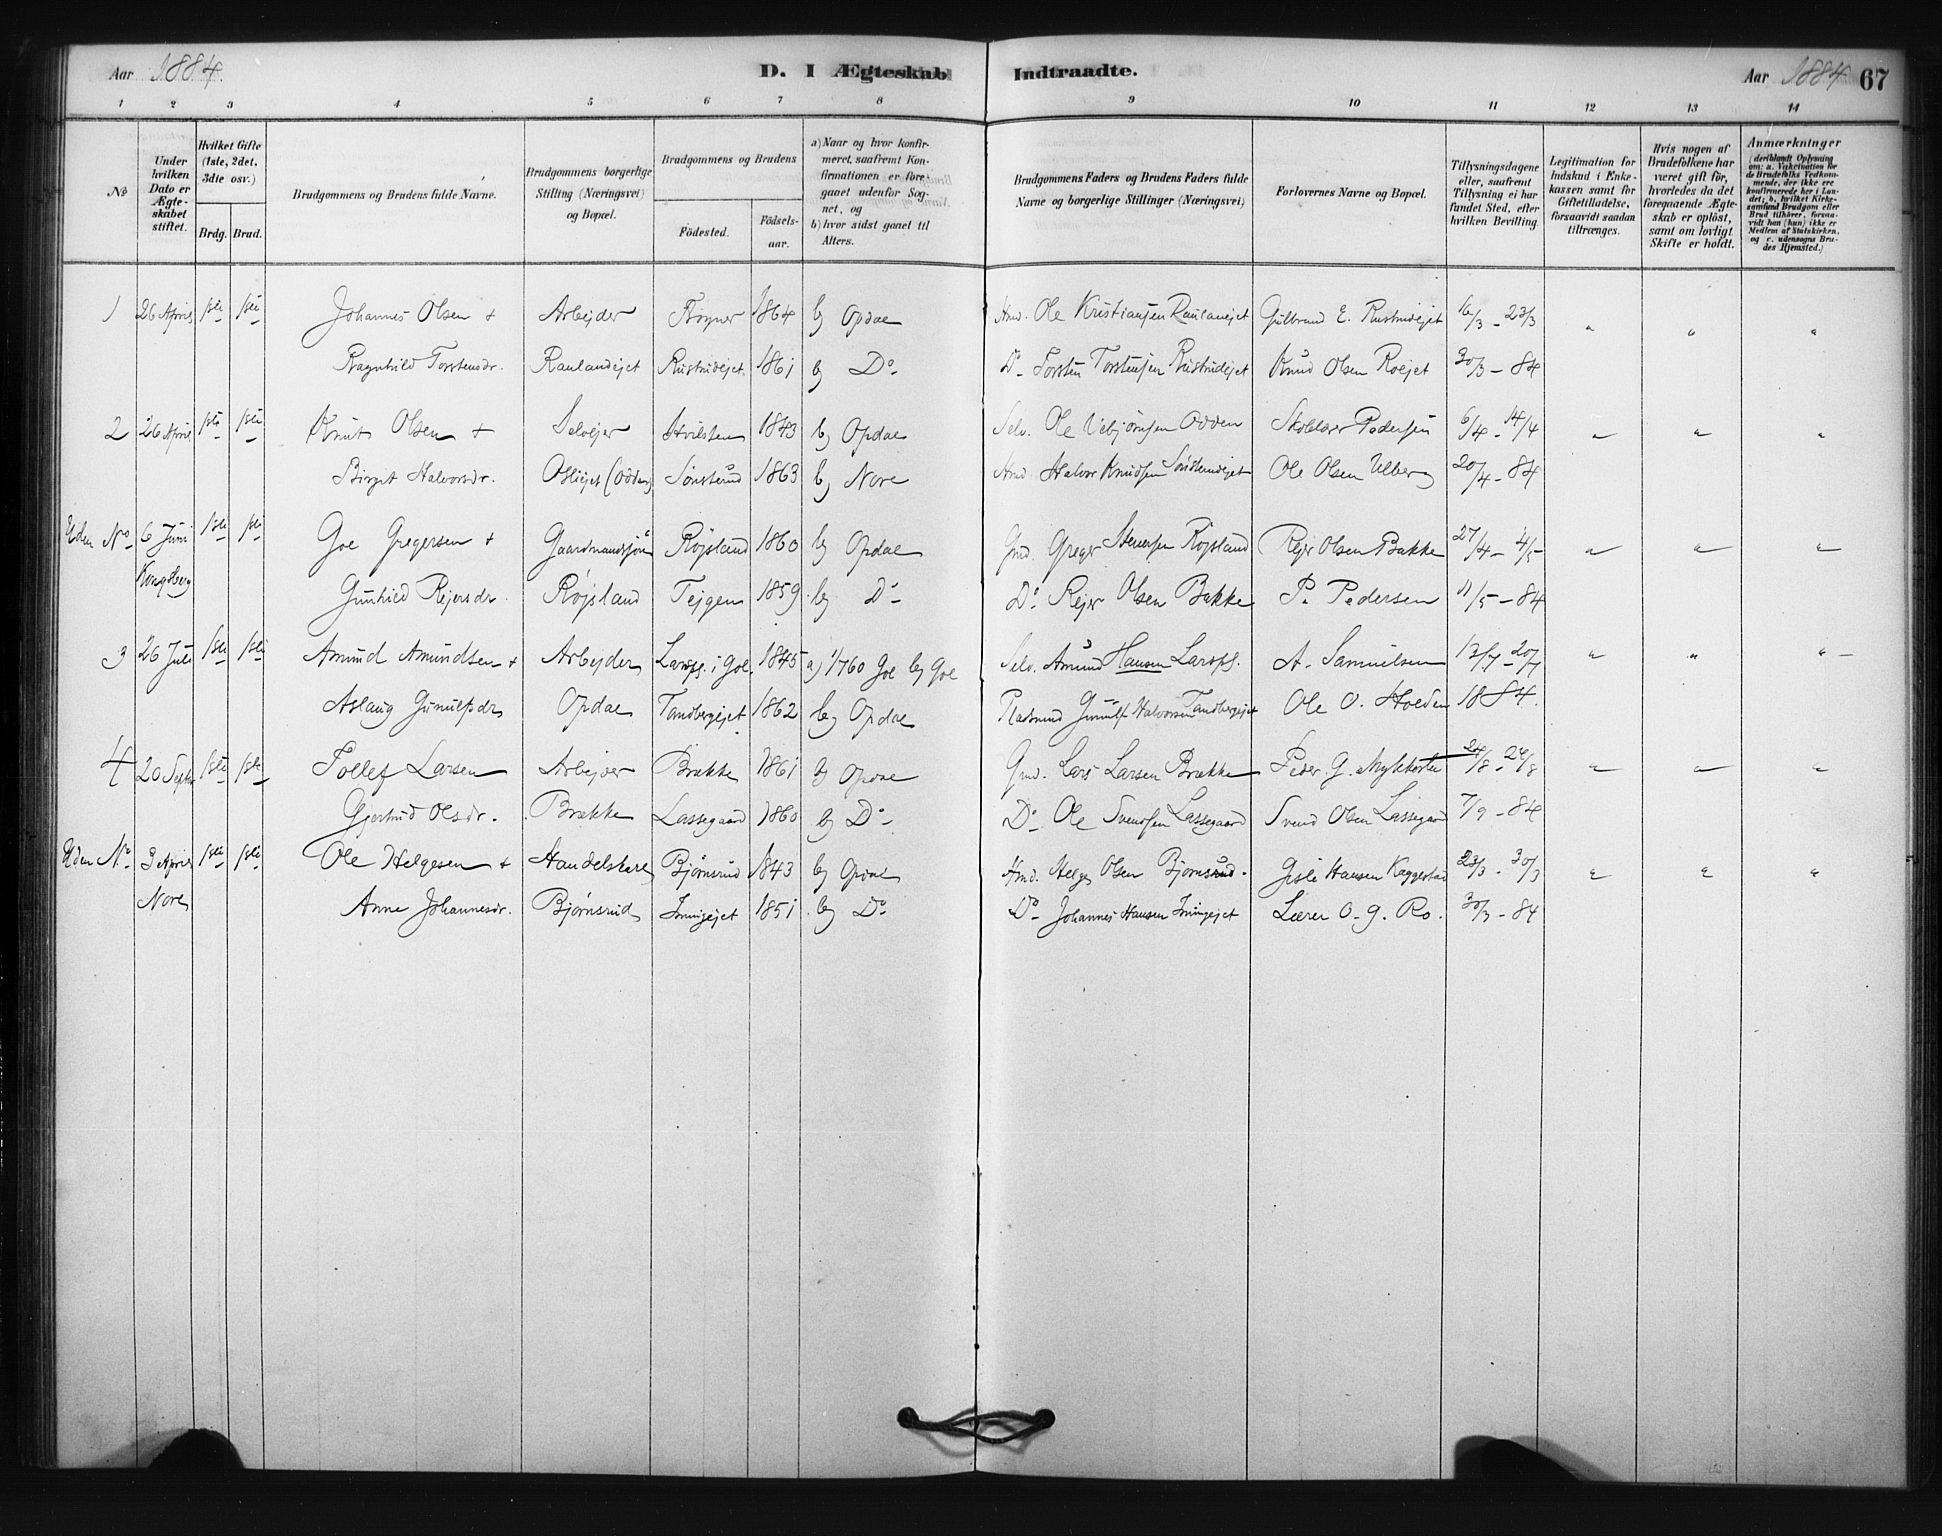 Aar 1884.
D. I Ægteskab Indtraadte.
Aar 1884 67
1 2 3 4 5 6 7 8 9 10 11 12 13 14
№
Under hvilken Dato er Ægteskabet stiftet.
Hvilket Gifte (1ste, 2det, 3die osv.)
Brdg. Brud.
Brudgommens og Brudens fulde Navne.
Brudgommens borgerlige Stilling (Næringsvei) og Bopæl.
Brudgommens og Brudens
Födested. Födsels-aar.
a) Naar og hvor konfirmeret, saafremt Konfirmationen er foregaaet udenfor Sognet, og
b) hvor sidst gaaet til Alters.
Brudgommens Faders og Brudens Faders fulde Navne og borgerlige Stillinger (Næringsvei)
Forlovernes Navne og Bopæl.
Tillysningsdagene eller, saafremt Tillysning ei har fundet Sted, efter hvilken Bevilling.
Legitimation for Indskud i Enkekassen samt for Giftetilladelse, forsaavidt saadan tiltrænges.
Hvis nogen af Brudefolkene har været gift för, hvorledes da det foregaaende Ægteskab er oplöst, samt om lovligt Skifte er holdt.
Anmærkninger (deriblandt Oplysning om: a. Vakcination for de Brudefolks Vedkommende, der ikke ere konfirmerede her i Landet; b. hvilket Kirkesamfund Brudgom eller Brud tilhörer, forsaavidt han (hun) ikke er Medlem af Statskirken, og c. udensogns Brudes Hjemsted.)
1 26 April 1ste 1ste Johannes Olsen + Arbejder Fogner 1864 b) Opdal Hmd. Ole Kristiansen Raulanejet Gulbrand E. Rustudejet 16/3 - 23/3 " " "
Ragnhild Torstensdr. Raulandejet Rustudejet 1861 b) Do- Do- Torsten Torstensen Rustudejet Knud Olsen Roejet 30/3 - 84
2 26 April 1ste 1ste Knut Olsen + Selvejer Hvilsten 1843 b) Opdal Selv. Ole Vebjørnsen Odden Skolelærer Pedersen 6/4 - 14/4 " " "
Birgit Halvorsdr. Osliejet (Odden) Sønsterud 1863 b) Nore Hmd. Halvor Knudsen Ole Olsen Ulberg 20/4 - 84
Uden No 6 Juni 1ste 1ste Goe Gregersen + Gaardmandssøn Røjsland 1860 b) Opdal Gmd. Greger Stenersen Röjsland Rejer Olsen Bakke 27/4 - 4/5 - " " "
Kongsberg Gunhild Rejersdr. Røjsland Tejgen 1859 b) Do- Do. Rejer Olsen Bakke P. Pedersen 11/5 - 84
3 26 Juli 1ste 1ste Amund Amundsen + Arbejder Larspl. i Gol. 1845 a) 1/7 60 Gol b) Gol Selv. Amund Hansen Larspl. A. Samuelsen 13/7 - 20/7 " " " -
Aslaug Gunulfsdr Opdal Tandbergejet 1862 b) Opdal Pladsmd Gunulf Halvorsen Tandbergejet Ole O. Hoeden 1884.
4 20 Septbr 1ste 1ste Tollef Larsen Arbejder Brække 1861 b) Opdal Gmd. Lars Larsen Brække Peder G. Mykstu 24/8 - 24/8 " " "
Gjertrud Olsdr. Brække Lassegaard 1860 b) Do- Do- Ole Svendsen Lassegaard Svend Olsen Lassegaard 7/9 - 84
Uden No. 3 April 1ste 1ste Ole Helgesen + Handelskarl Bjørnsrud 1843 b) Opdal Hmd. Helge Olsen Bjørnsrud. Gisle Hansen Kaggestad 23/3 - 30/3 " " "
Nore Anne Johannesdr. Bjørnsrud 1851. b) Do. Do- Johannes Hansen Lærer O. G. Ro. 30/3 - 84